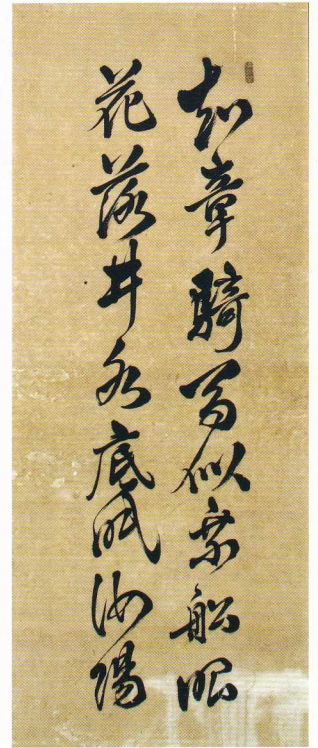 知章騎馬似乘船眼
花落井水底眠汝陽